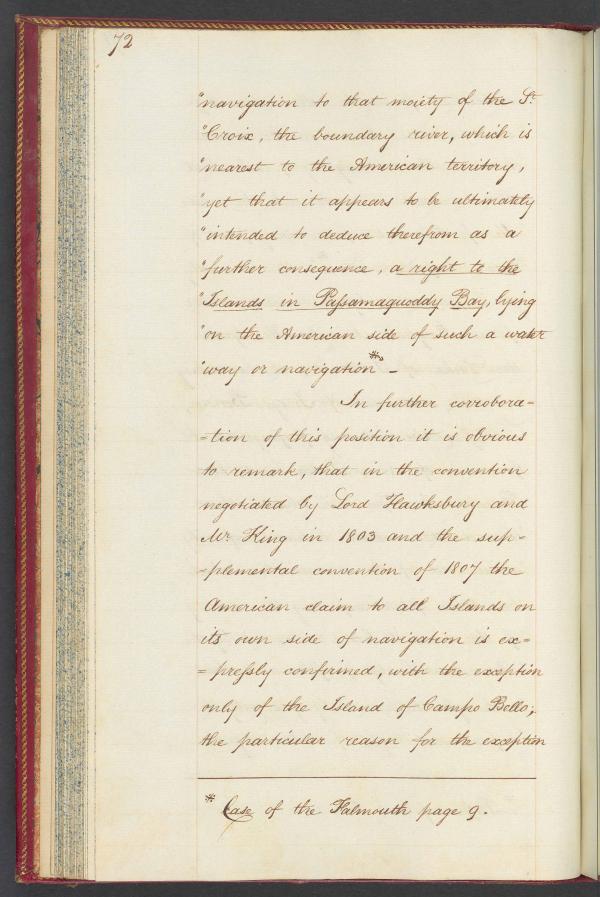 72
"navigation to that moiety of the St.
"Croix, the boundary river, which is
"nearest to the American territory,
"yet that it appears to be ultimately
"intended to deduce therefrom as a
"further consequence, a right to the
"Islands in Paſsamaquoddy Bay, lying
"on the American side of such a water
"way or navigation"* –
In further corrobora=
=tion of this position it is obvious
to remark, that in the convention
negotiated by Lord Hawksbury and
Mr. King in 1803 and the sup=
=plemental convention of 1807 the
American claim to all Islands on
its own side of navigation is ex=
=preſsly confirmed, with the exception
only of the Island of Campo Bello;
the particular reason for the exception
* Case of the Falmouth page 9.